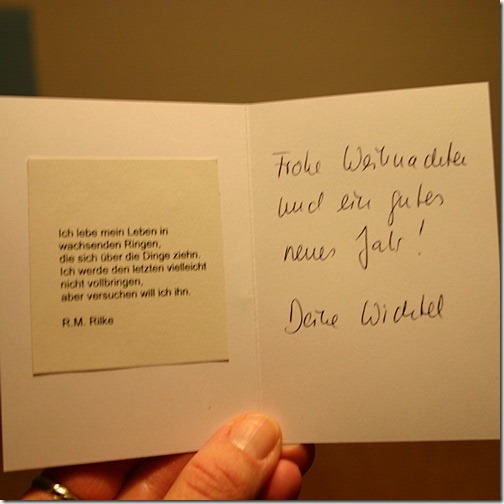 Ich lebe mein Leben in
wachsenden Ringen,
die sich über die Dinge ziehn.
Ich werde den letzten vielleicht
nicht vollbringen,
aber versuchen will ich ihn.
R.M. Rilke
Frohe Weihnachten
und ein gutes
neues Jahr!
Deine Wichtel